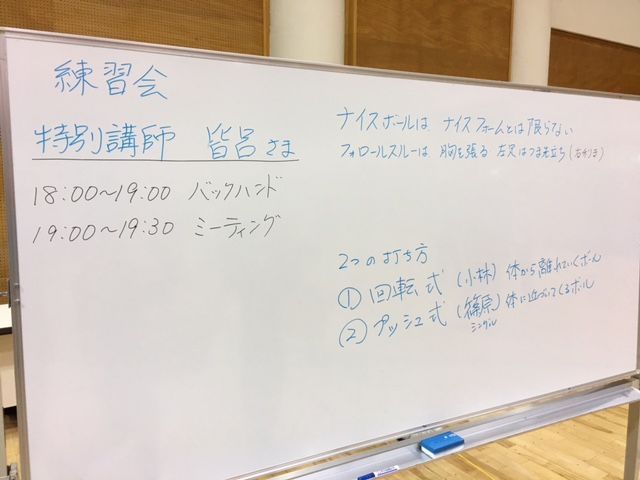 練習会
特別講師 皆呂さま
18:00～19:00 バックハンド
19:00～19:30 ミーティング
ナイスボールは ナイスフォームとは限らない
フォロールスルーは 胸を張る 左足はつま先立ち(右利き)
2つの打ち方
① 回転式 (小林) 体から離れていくボール
② プッシュ式 (篠原) 体に近づいてくるボール
シングル